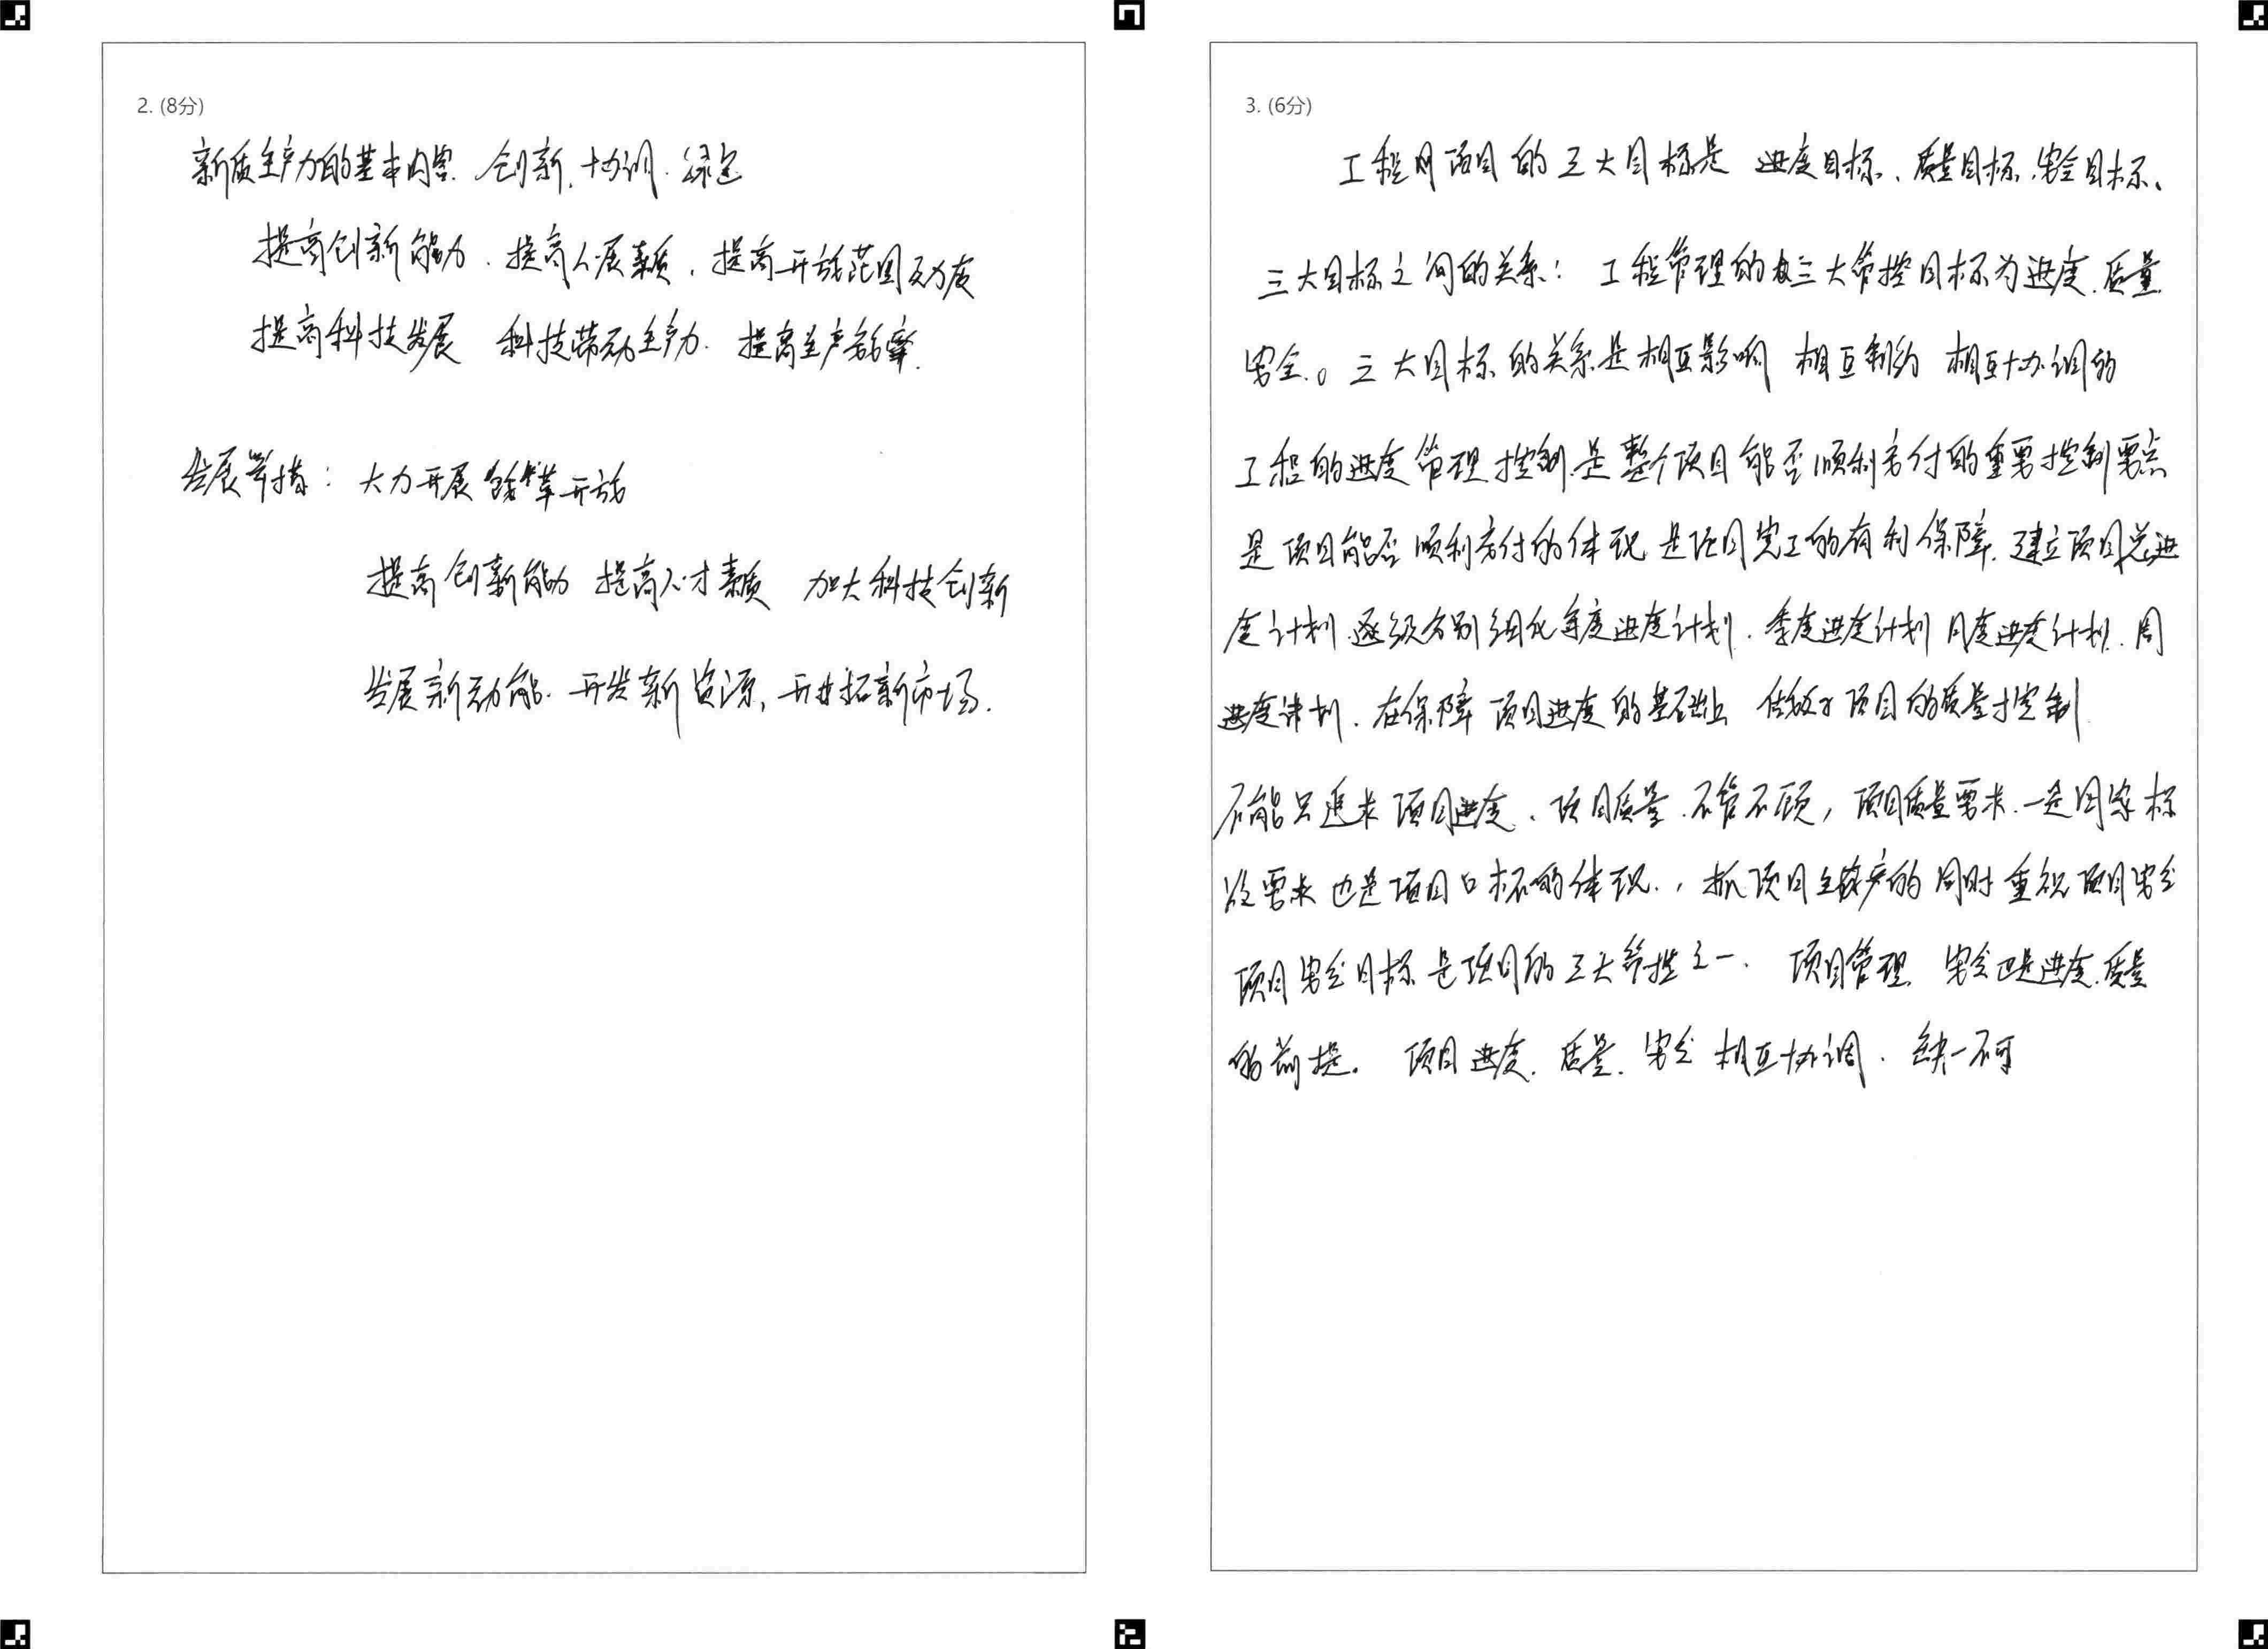 2. (8分)
新质生产力的基本内容、创新、协调、绿色
提高创新能力、提高人展素质、提高开放范围动力度
提高科技发展 科技带动生产力、提高生产效率.
发展举措：大力开展改革开放
提高创新能力 提高人才素质 加大科技创新
发展新动能、开发新资源，开拓新市场.
3. (6分)
工程项目的三大目标是 进度目标、质量目标、安全目标、
三大目标之间的关系：工程管理的三大管控目标为进度、质量
安全。三大目标的关系是相互影响 相互制约 相互协调的
工程的进度管理控制是整个项目能否顺利交付的重要控制要点
是项目能否顺利交付的体现 是项目完工的有利保障、建立项目总进
度计划 逐级分别细化年度进度计划、季度进度计划 月度进度计划、周
进度计划、在保障项目进度的基础上 做好项目的质量控制
不能只追求项目进度、项目质量、不管不顾，项目质量要求、一是国家标
要求 也是项目目标的体现、，抓项目生产的同时重视项目安全
项目安全目标是项目的三大管控之一、项目管理 安全也是进度、质量
的前提。项目进度、质量、安全相互协调、缺一不可